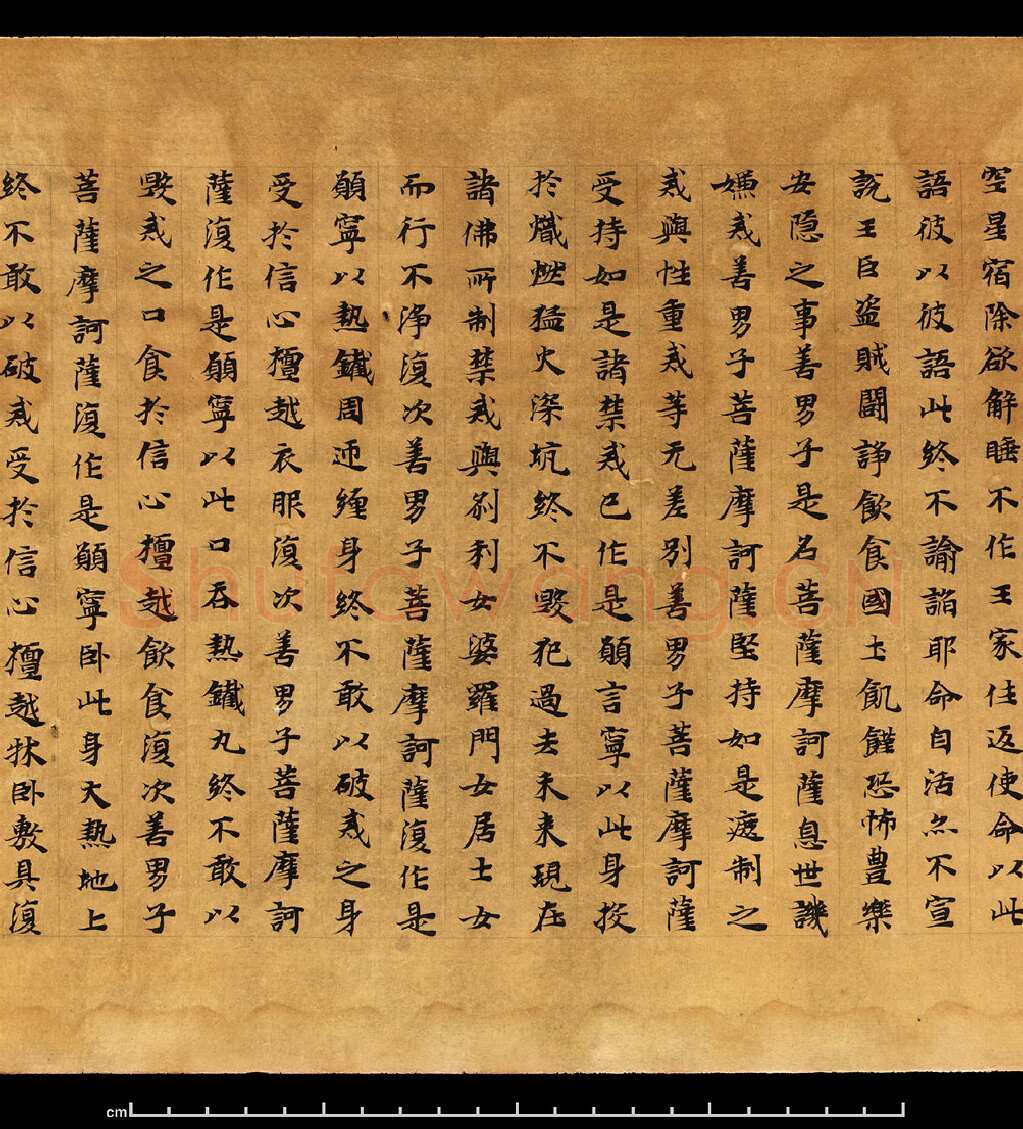 空星宿除欲解睡不作王家往返使命以此
語彼以彼語此終不諭諂耶命自活亦不宣
說王臣盗賊鬪諍飲食國土飢饉恐怖豊樂
安隐之事善男子是名菩薩摩訶薩息世譏
嫌戒善男子菩薩摩訶薩堅持如是遮制之
戒與性重戒等无差别善男子菩薩摩訶薩
受持如是諸禁戒已作是願言寧以此身投
於熾燃猛火深坑終不毀犯過去未来現在
諸佛所制禁戒與刹利女婆羅門女居士女
而行不淨復次善男子菩薩摩訶薩復作是
願寧以熱鐵周迊纏身終不敢以破戒之身
受於信心檀越衣服復次善男子菩薩摩訶
薩復作是願寧以此口吞熱鐵丸終不敢以
毀戒之口食於信心檀越飲食復次善男子
菩薩摩訶薩復作是願寧卧此身大熱地上
終不敢以破戒受於信心檀越牀卧敷具復
Shufawang.cn
cm